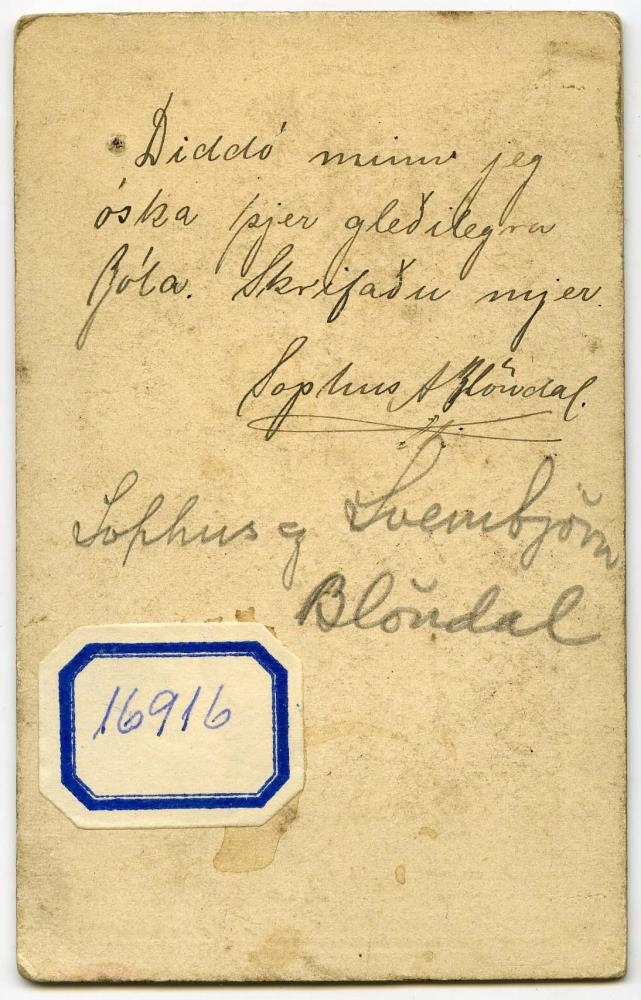 Diddó minn jeg
óska þjer gleðilegra
Jóla. Skrifaðu mjer.
Sophus A Blöndal.
Sophus og Sveinbjörn
Blöndal
16916